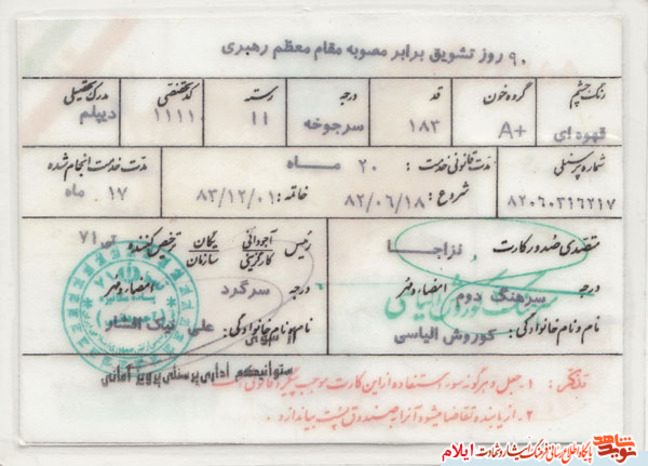 ۹۰ روز تشویق برابر مصوبه مقام معظم رهبری
رنگ چشم گروه خون قد درجه رسته کد تخصصی مدرک تحصیلی
قهوه ای A+ ۱۸۳ سرجوخه ۱۱ ۱۱۱۱ دیپلم
شماره پرسنلی مدت قانونی خدمت : ۲۰ مـاه مدت خدمت انجام شده
۸۲۰۶۰۳۱۶۲۱۷ شروع : ۸۲/۰۶/۱۸ خاتمه : ۸۳/۱۲/۰۱ ۱۷ ماه
متصدی صدور کارت نزاجا
درجه سرهنگ دوم امضاء و مهر
نام و نام خانوادگی : کوروش الیاسی
رئیس آجودانی یگان ترخیص کننده
کارگزینی سازمان
درجه سرگرد امضاء و مهر
نام و نام خانوادگی : علی نیک افشار
ستوانیکم اداری پرسنلی پرویز امانی
تذکر : ۱- جعل و هرگونه سوء استفاده از این کارت موجب پیگرد قانونی است
۲- از یابنده تقاضا میشود آنرا به صندوق پست بیاندازد .
نوید شاهد پایگاه اطلاع رسانی فرهنگ ایثار و شهادت ایلام